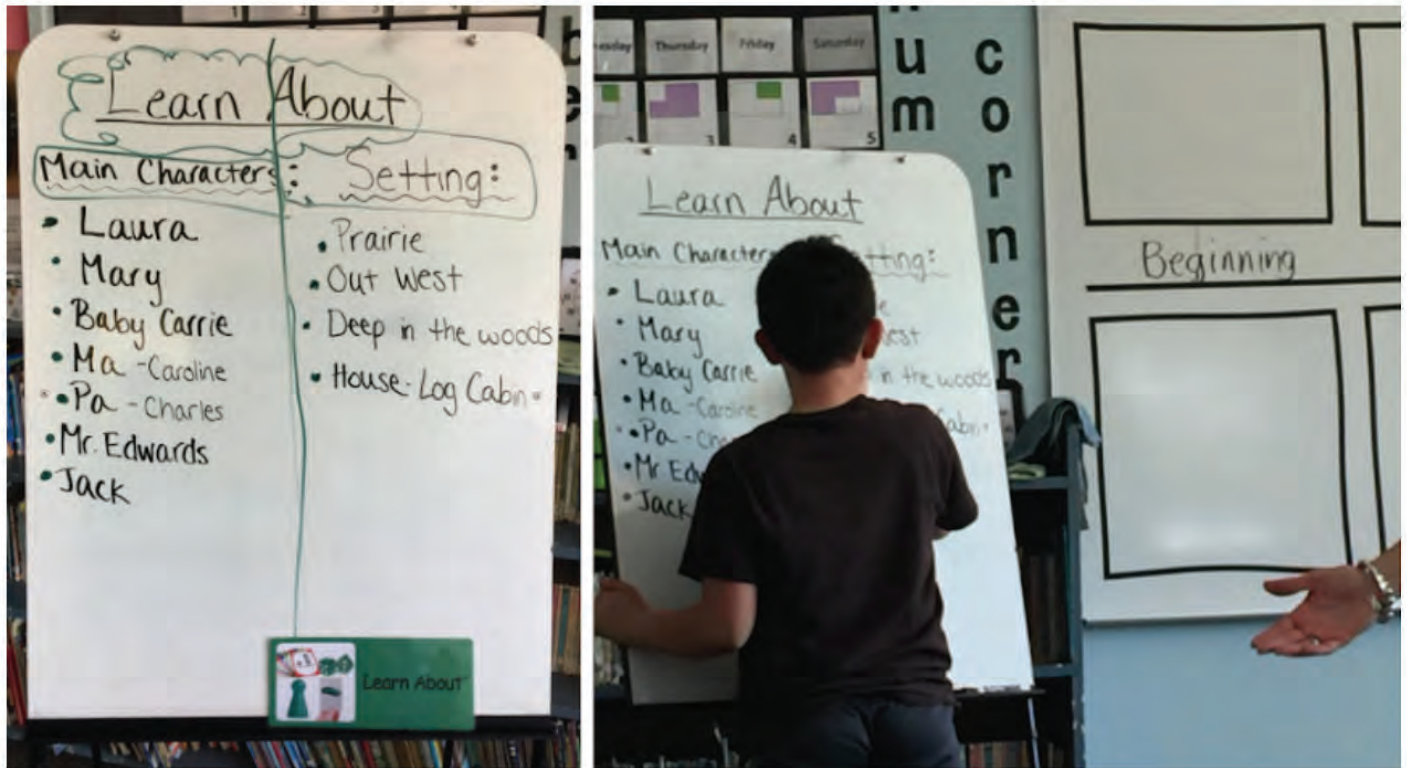 Learn About
Main Characters:
Setting:
• Laura
• Mary
• Baby Carrie
• Ma - Caroline
• Pa - Charles
• Mr. Edwards
• Jack
• Prairie
• Out West
• Deep in the woods
• House - Log Cabin
Learn About
Thursday
Friday
Saturday
3
4
5
um
corner
Learn About
Main Characters
tting:
• Laura
• Mary
• Baby Carrie
• Ma - Caroline
• Pa - Cha
• Mr Edw
• Jack
in the woods
Cabin
Beginning